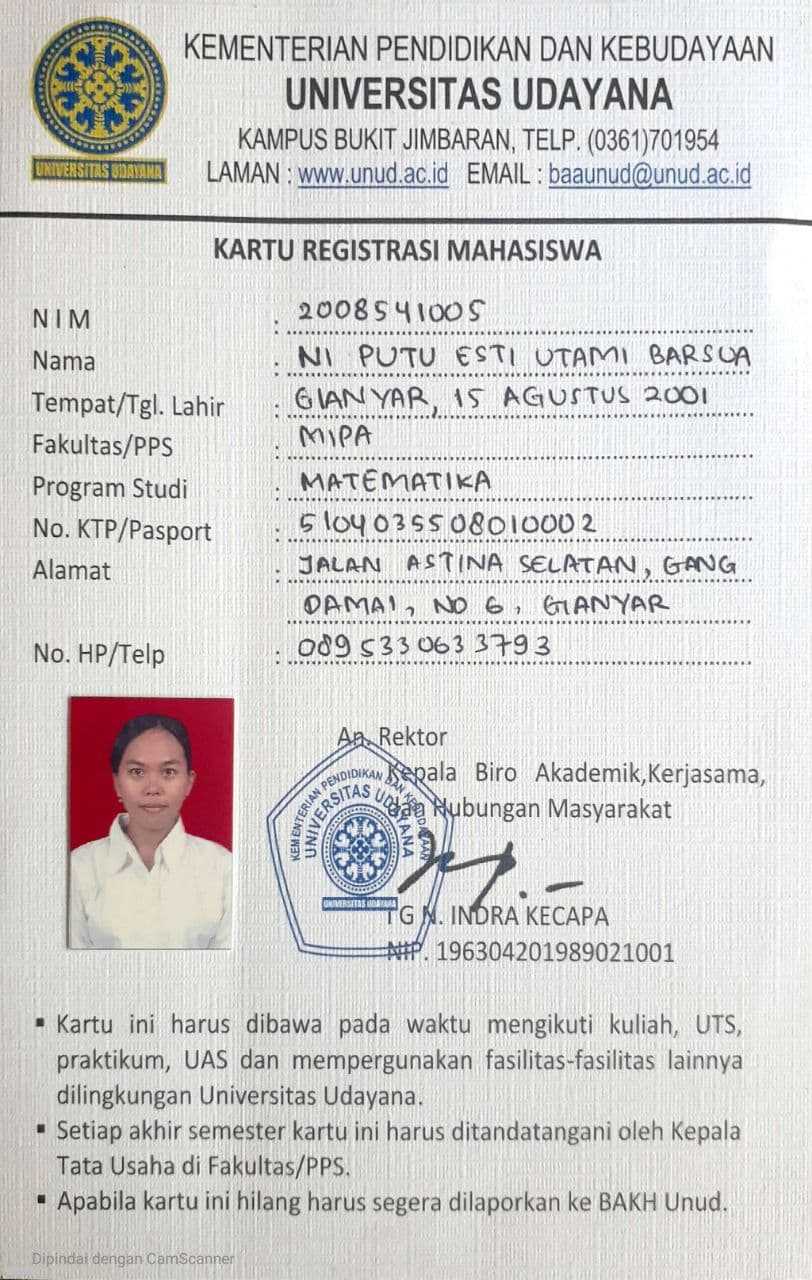 KEMENTERIAN PENDIDIKAN DAN KEBUDAYAAN
UNIVERSITAS UDAYANA
KAMPUS BUKIT JIMBARAN, TELP. (0361)701954
LAMAN : www.unud.ac.id EMAIL : baaunud@unud.ac.id
UNIVERSITAS UDAYANA
KARTU REGISTRASI MAHASISWA
NIM : 2008541005
Nama : NI PUTU ESTI UTAMI BARSUA
Tempat/Tgl. Lahir : GIANYAR, 15 AGUSTUS 2001
Fakultas/PPS : MIPA
Program Studi : MATEMATIKA
No. KTP/Pasport : 5104035508010002
Alamat : JALAN ASTINA SELATAN, GANG
DAMAI, NO 6, GIANYAR
No. HP/Telp : 0895330633793
An. Rektor
Kepala Biro Akademik,Kerjasama,
dan Hubungan Masyarakat
KEMENTERIAN PENDIDIKAN DAN KEBUDAYAAN
UNIVERSITAS UDAYANA
UNIVERSITAS UDAYANA
IG N. INDRA KECAPA
NIP. 196304201989021001
▪ Kartu ini harus dibawa pada waktu mengikuti kuliah, UTS,
praktikum, UAS dan mempergunakan fasilitas-fasilitas lainnya
dilingkungan Universitas Udayana.
▪ Setiap akhir semester kartu ini harus ditandatangani oleh Kepala
Tata Usaha di Fakultas/PPS.
▪ Apabila kartu ini hilang harus segera dilaporkan ke BAKH Unud.
Dipindai dengan CamScanner